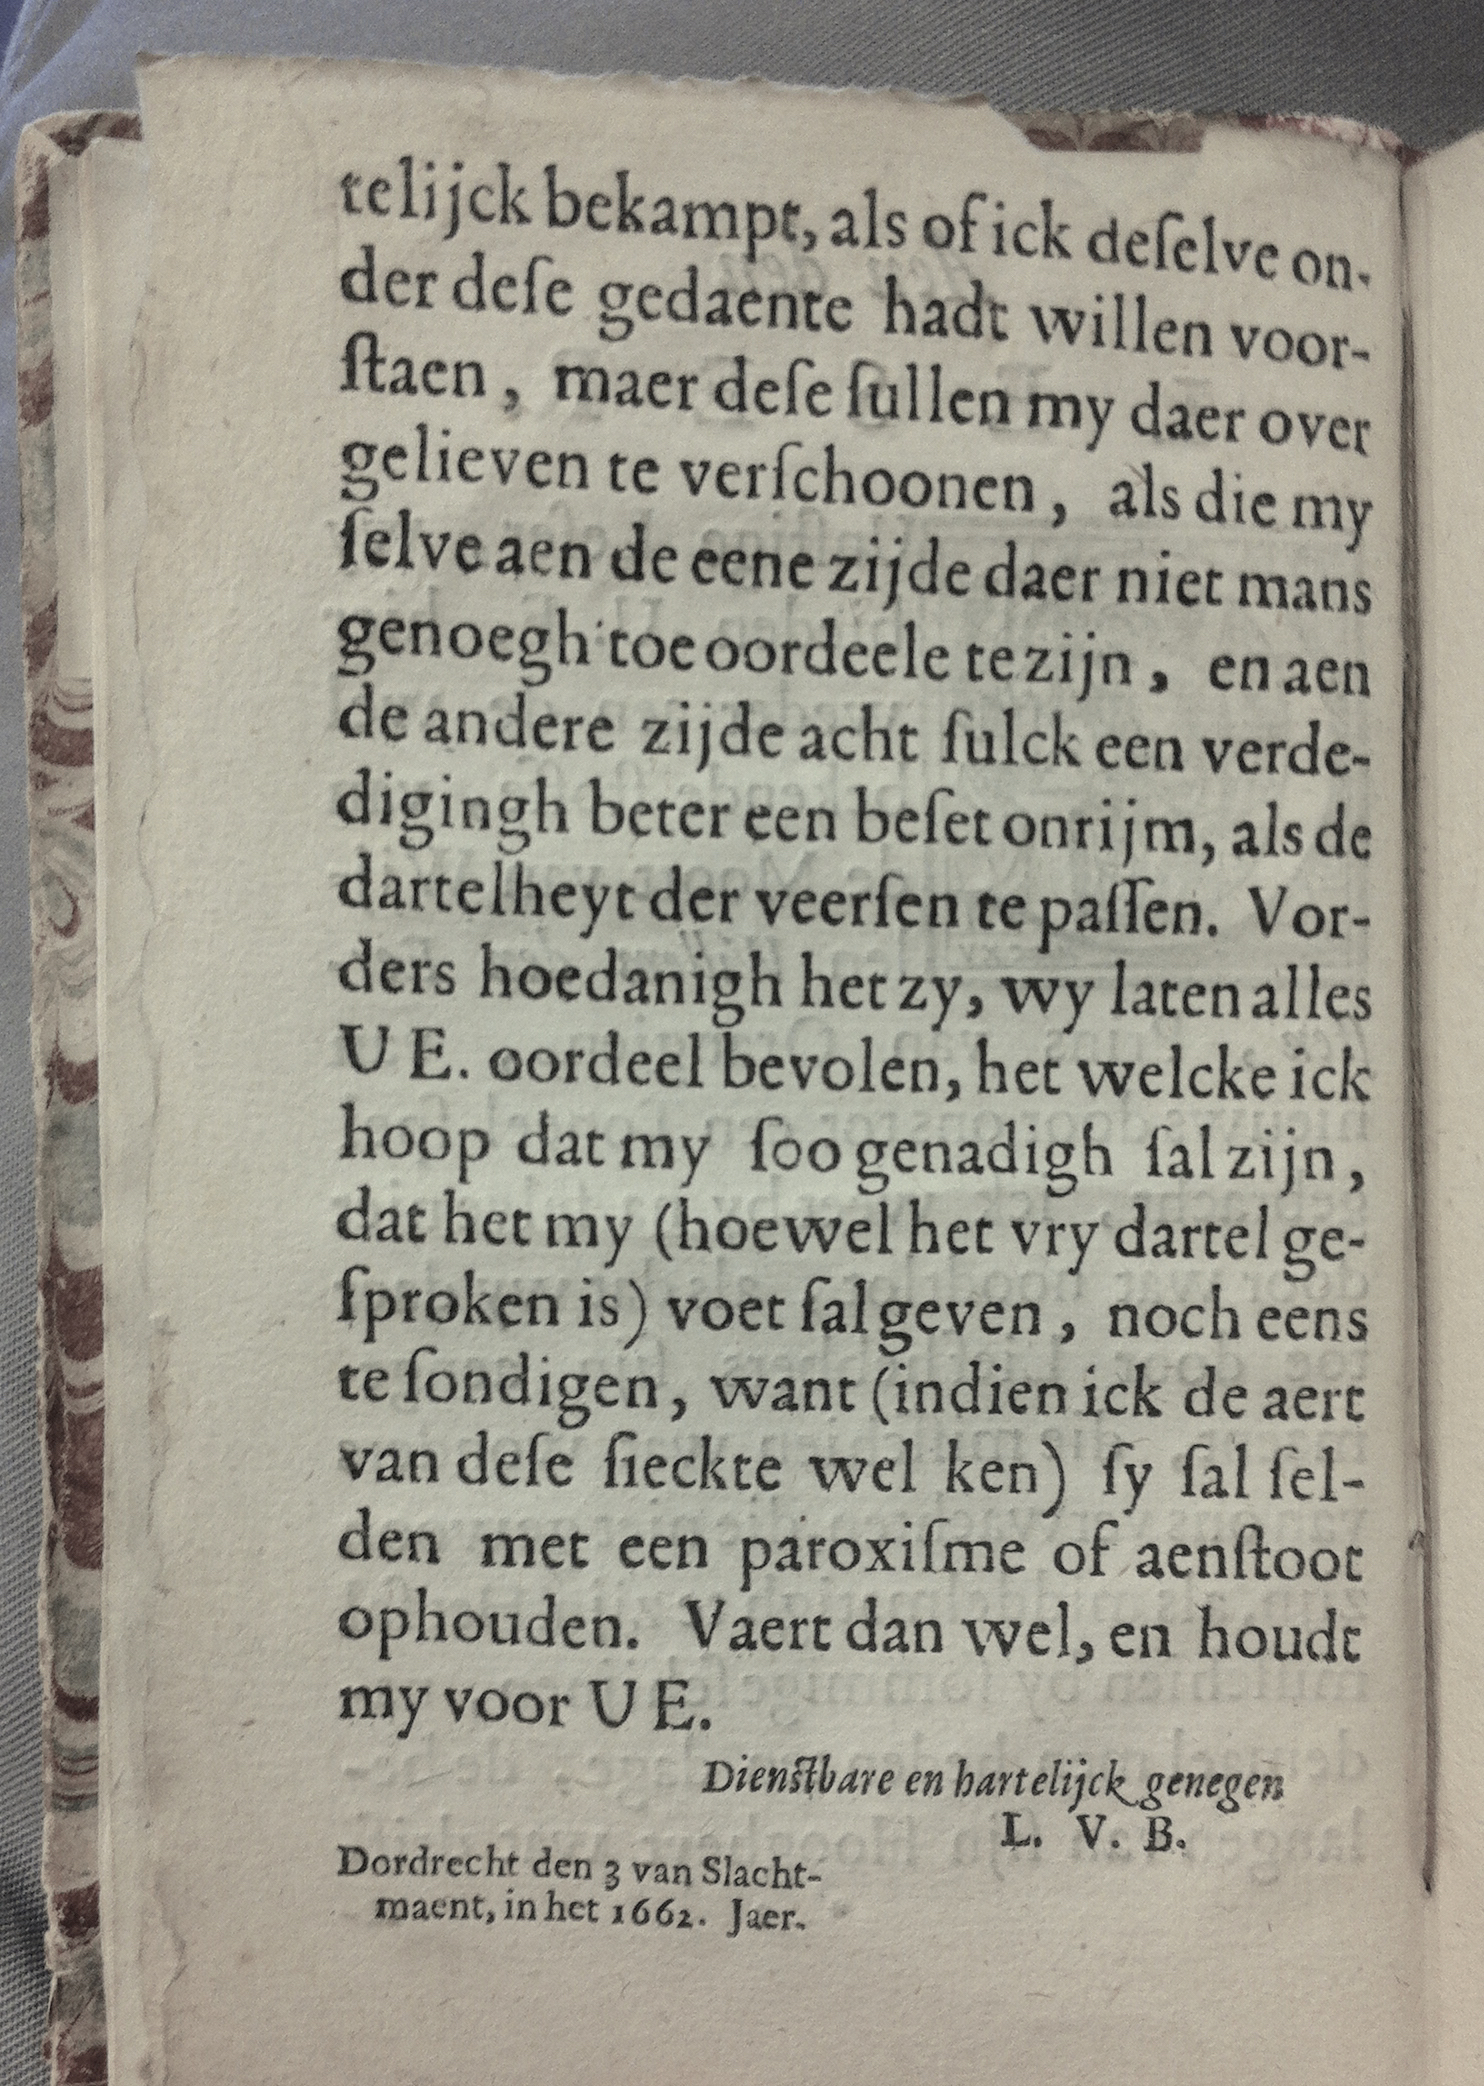 telijck bekampt, als of ick deſelve on-
der deſe gedaente hadt willen voor-
ſtaen, maer deſe ſullen my daer over
gelieven te verſchoonen, als die my
ſelve aen de eene zijde daer niet mans
genoegh toe oordeele te zijn, en aen
de andere zijde acht ſulck een verde-
digingh beter een beſet onrijm, als de
dartelheyt der veerſen te paſſen. Vor-
ders hoedanigh het zy, wy laten alles
U E. oordeel bevolen, het welcke ick
hoop dat my ſoo genadigh ſal zijn,
dat het my (hoewel het vry dartel ge-
ſproken is) voet ſal geven, noch eens
te ſondigen, want (indien ick de aert
van deſe ſieckte wel ken) ſy ſal ſel-
den met een paroxiſme of aenſtoot
ophouden. Vaert dan wel, en houdt
my voor U E.
Dienſtbare en hartelijck genegen
L. V. B.
Dordrecht den 3 van Slacht-
maent, in het 1662. Jaer.